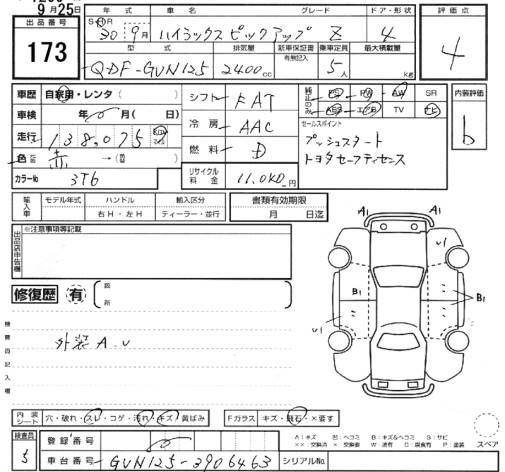 9月25日
出品番号 173
年式 車名 グレード ドア・形状 評価点
S H R 30 9月 ハイラックスピックアップ Z 4 4
型式 排気量 新車保証書 有無記入 乗車定員 最大積載量
QDF-GUN125 2400cc 5人 kg
車歴 自家用・レンタ( )
シフト FAT
純正品のみ PS PW AW SR
内装評価 b
車検 年 (月 日)
冷房 AAC
ABS エアB TV ナビ
走行 138,075 Km マイル
燃料 D
セールスポイント
プッシュスタート
トヨタセーフティセンス
色 赤 → ( )
カラーNo 3T6
リサイクル料金 11,0KD円
輸入車 モデル年式 ハンドル 輸入区分 書類有効期限
右H・左H ディーラー・並行 月 日迄
出品店申告欄 ※注意事項等記載
修復歴 有 箇所
検査員記入欄
外装 A.U
A1 A1
U1
B1 B1
U1
内装シート 穴・破れ・スレ・コゲ・汚れ・キズ・黄ばみ Fガラス キズ・飛石・×要す
検査員 5
登録番号
車台番号 GUN125-3906463 シリアルNo.
A:キズ 凹:ヘコミ B:キズ&ヘコミ S:サビ
××:交換済 ×:交換要 W:波有 C:腐食有 P:塗装
スペア